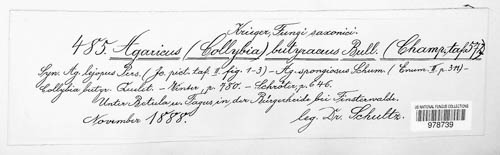 Krieger, Fungi saxonici.
485. Agaricus (Collybia) butyraceus Bull. (Champ. taf. 572
Syn: Ag. lejopus Pers. (Jc. pict. taf. II. fig. 1-3) - Ag. spongiosus Schum. (Enum. II. p. 311) -
Collybia butyr. Quelet. - Winter, p. 780. - Schröter, p. 646.
Unter Betula u. Fagus in der Bürgerheide bei Finsterwalde.
November 1888. leg. Dr. Schultz.
US NATIONAL FUNGUS COLLECTIONS
978739